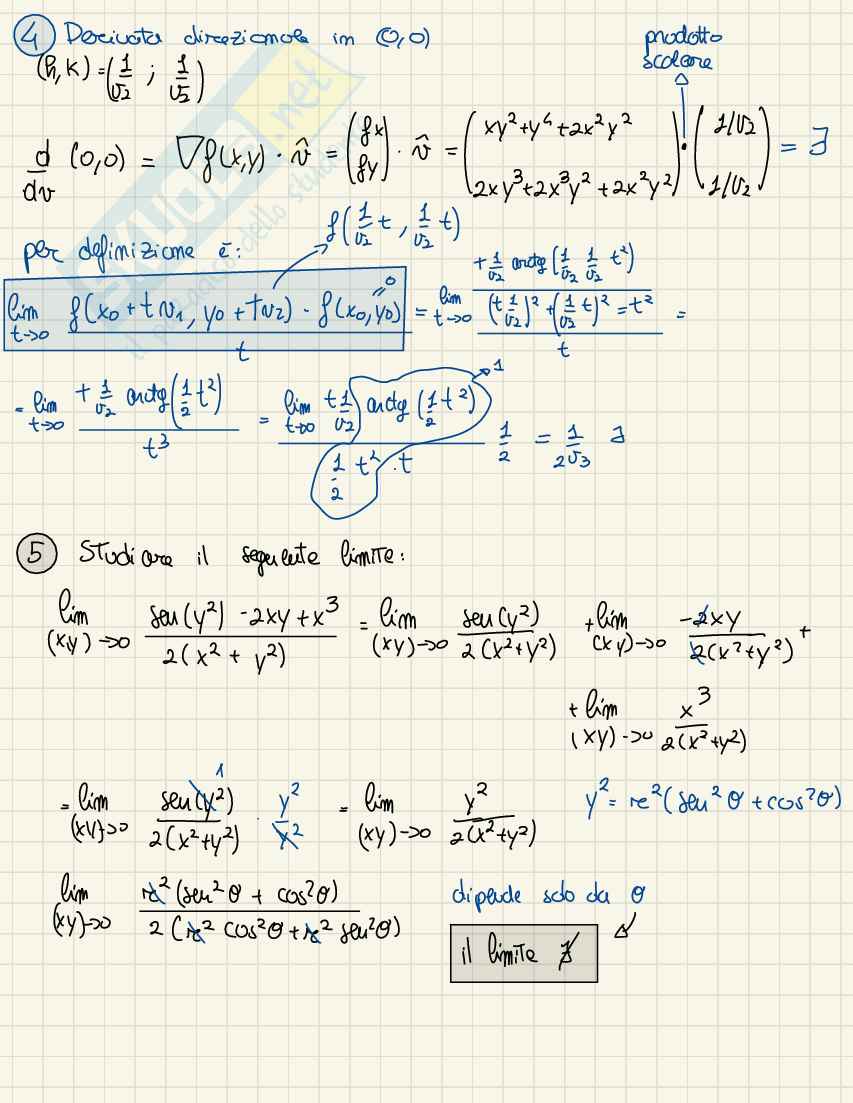 4 Derivata direzionale in (0,0)
prodotto scalare
(h,k) = (1/√2 ; 1/√2)
d/dv (0,0) = ∇f(x,y) · v̂ = (fx fy) · v̂ = (xy²+y⁴+2x²y² 2xy³+2x³y²+2x²y²) · (1/√2 1/√2) = ∃
per definizione è: f(1/√2 t, 1/√2 t)
lim t→0 f(x₀+tv₁, y₀+tv₂) - f(x₀,y₀) / t = lim t→0 +1/√2 arctg(1/√2 1/√2 t²) / (t 1/√2)² + (1/√2 t)² = t² / t =
0
= lim t→0 + 1/√2 arctg(1/2 t²) / t³ = lim t→0 t 1/√2 arctg(1/2 t²) / 1/2 t² · t 1/2 = 1/2√3 ∃
1
5 Studiare il seguente limite:
lim (x,y)→0 sen(y²) - 2xy + x³ / 2(x² + y²) = lim (xy)→0 sen(y²) / 2(x²+y²) + lim (xy)→0 -2xy / 2(x²+y²) +
+ lim (xy)→0 x³ / 2(x²+y²)
= lim (xy)→0 sen(y²) / 2(x²+y²) · y²/y² = lim (xy)→0 y² / 2(x²+y²) y² = r²(sen²θ + cos²θ)
1
lim (xy)→0 r²(sen²θ + cos²θ) / 2(r² cos²θ + r² sen²θ) dipende solo da θ
il limite ∄
SKUOLA.net
il paradiso dello studente